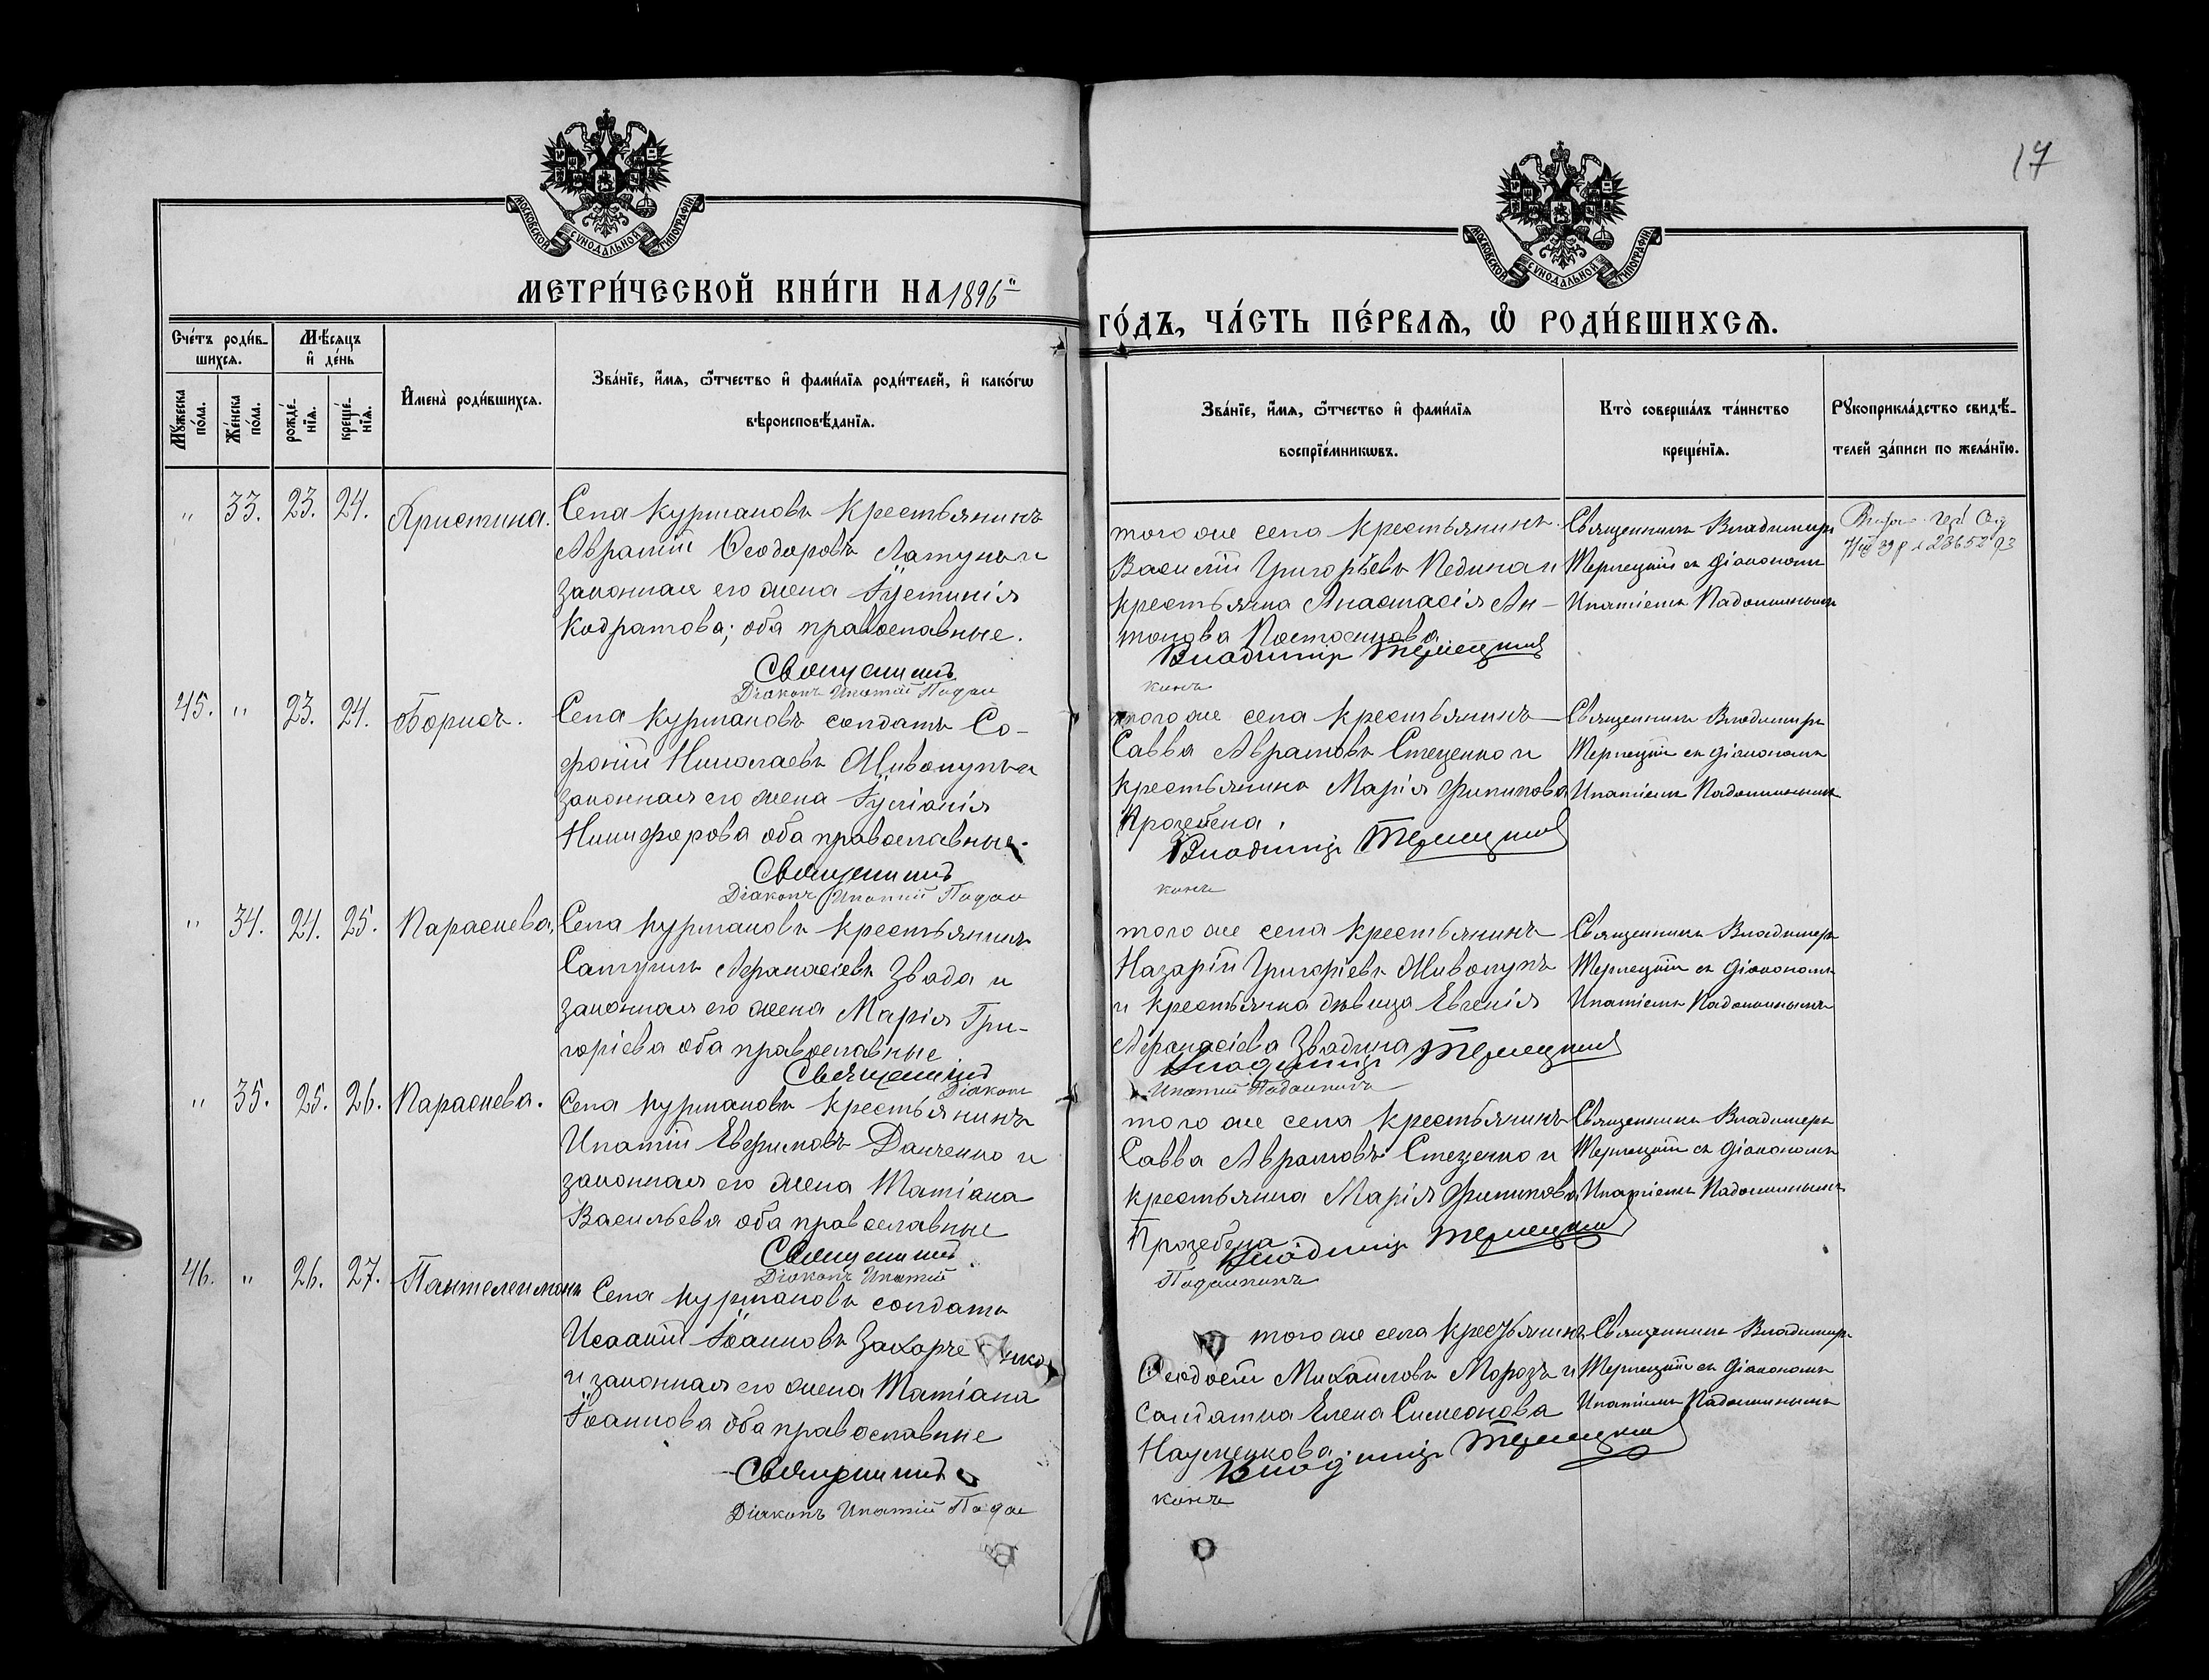 17
МОСКОВСКОЙ СѴНОДАЛЬНОЙ ТИПОГРАФІИ
МОСКОВСКОЙ СѴНОДАЛЬНОЙ ТИПОГРАФІИ
МЕТРИ́ЧЕСКОЙ КНИ́ГИ НА 1896й
ГО́ДЪ, ЧА́СТЬ ПЕ́РВАѦ, Ѽ РОДИ́ВШИХСѦ.
Сче́тъ роди́в-
шихсѧ.
Мѣ́сѧцъ
и҆ де́нь
Мꙋ́жеска по́ла.
Же́нска по́ла.
рожде́-нїѧ.
креще́-нїѧ.
И҆мена̀ роди́вшихсѧ.
Зва́нїе, и҆́мѧ, ѻ҆́тчество и҆ фами́лїѧ роди́телей, и҆ како́гѡ
вѣроисповѣ́данїѧ.
Зва́нїе, и҆́мѧ, ѻ҆́тчество и҆ фами́лїѧ
воспрїе́мникѡвъ.
Кто̀ соверша́лъ та́инство
креще́нїѧ.
Рꙋкоприкла́дство свидѣ́-
телей за́писи по жела́нїю.
" 33. 23. 24. Христина.
Села Курмановъ крестьянинъ
Авраамій Ѳеодоровъ Латунъ и
законная его жена Іустинія
Кодратова; оба православные.
Священникъ
Діаконъ Ипатій Падал
того же села крестьянинъ
Василій Григорьевъ Педина и
крестьянка Анастасія Ан-
тонова
Владиміръ Терлецкій
кинъ
Священникъ Владимиръ
Терлецкій съ діакономъ
Ипатіемъ Падалкинымъ
45. " 23. 24. Борисъ.
Села Курмановъ солдатъ Со-
фоній Николаевъ Живолупъ и
законная его жена Іуліанія
Никифорова оба православные.
Священникъ
Діаконъ Ипатій Падал
того же села крестьянинъ
Савва Аврамовъ Стеценко и
крестьянка Марія Филипова
Прозебена.
Владиміръ Терлецкій
кинъ
Священникъ Владимиръ
Терлецкій съ діакономъ
Ипатіемъ Падалкинымъ
" 34. 24. 25. Параскева.
Села Курмановъ крестьянинъ
Самуилъ Афанасіевъ Звада и
законная его жена Марія Гри-
горіева оба православные
Священникъ
Діаконъ
того же села крестьянинъ
Назарій Григоріевъ Живолупъ
и крестьянка дѣвица Евгенія
Афанасіева Звадина
Владиміръ Терлецкій
Ипатій Падалкинъ
Священникъ Владимиръ
Терлецкій съ діакономъ
Ипатіемъ Падалкинымъ
" 35. 25. 26. Параскева.
Села Курмановъ крестьянинъ
Ипатій Евфимовъ Данченко и
законная его жена Татіана
Васильева оба православные
Священникъ
Діаконъ Ипатій
того же села крестьянинъ
Савва Аврамовъ Стеценко и
крестьянка Марія Филипова
Прозебена
Владиміръ Терлецкій
Падалкинъ
Священникъ Владимиръ
Терлецкій съ діакономъ
Ипатіемъ Падалкинымъ
46. " 26. 27. Пантелеимонъ
Села Курмановъ солдатъ
Исаакій Іоанновъ Захарченко
и законная его жена Татіана
Іоаннова оба православные
Священникъ
Діаконъ Ипатій Падал
того же села крестьянинъ
Ѳеодосій Михаиловъ Морозъ и
солдатка Елена Симеонова
Науменкова.
Владиміръ Терлецкій
кинъ
Священникъ Владимиръ
Терлецкій съ діакономъ
Ипатіемъ Падалкинымъ